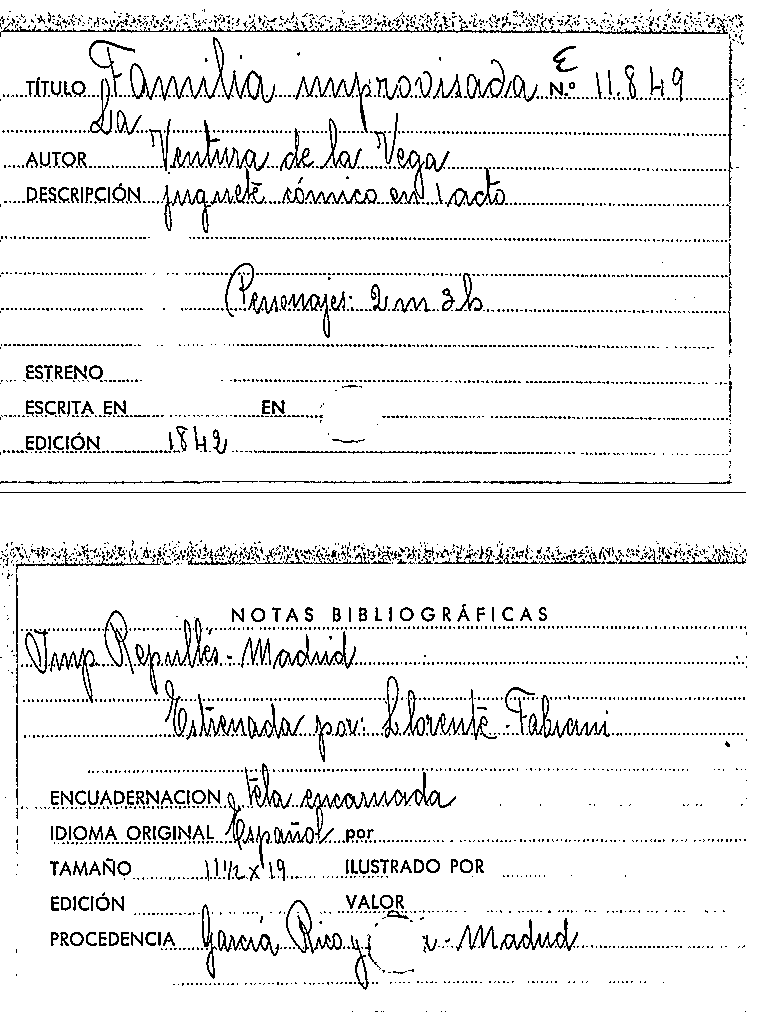 E
TÍTULO Familia improvisada N.º 11.849
La
AUTOR Ventura de la Vega
DESCRIPCIÓN juguete cómico en 1 acto
Personajes: 2 m 3 h
ESTRENO
ESCRITA EN EN
EDICIÓN 1842
NOTAS BIBLIOGRÁFICAS
Imp Repullés - Madrid
Estrenada por: Llorente - Fabiani
ENCUADERNACION tela encarnada
IDIOMA ORIGINAL Español por
TAMAÑO 11 1/2 x 19 ILUSTRADO POR
EDICIÓN VALOR
PROCEDENCIA García Rico y - Madrid